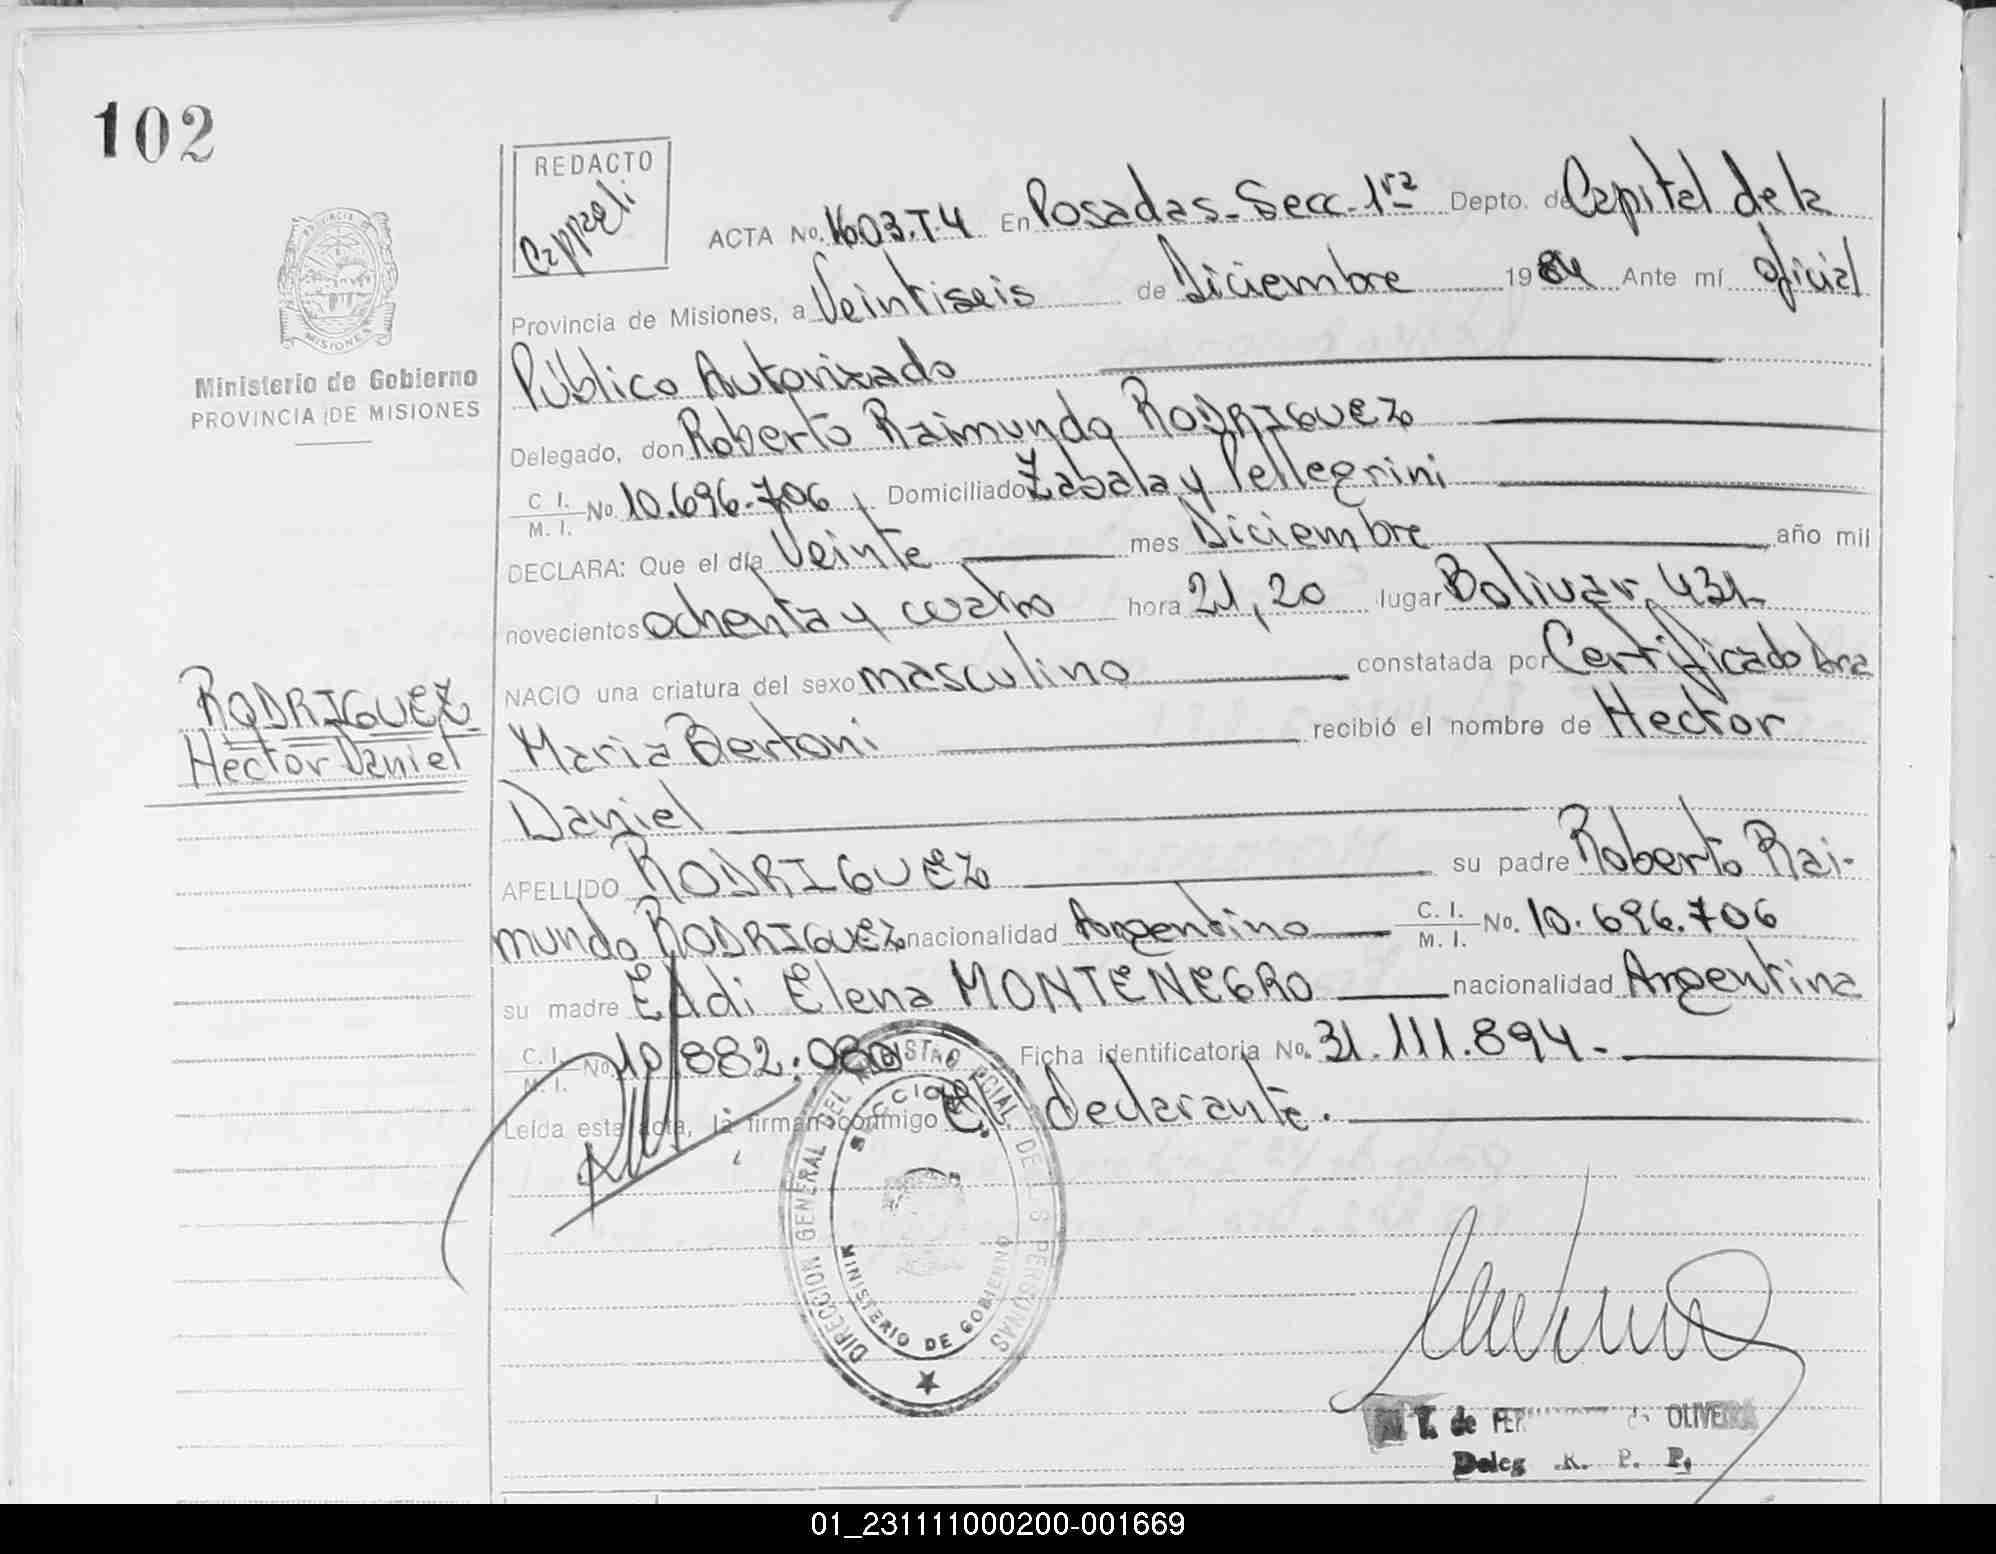 102
REDACTO
Cappaeli
ACTA No. 1603.T.4 En Posadas-Secc-1ra Depto. de Capital de la
Provincia de Misiones, a Veintiseis de Diciembre 1984 Ante mí oficial
Ministerio de Gobierno
PROVINCIA DE MISIONES
Público Autorizado
Delegado, don Roberto Raimundo RODRIGUEZ
C. I. M. I. No 10.696.706, Domiciliado Zabala y Pellegrini
DECLARA: Que el día Veinte mes Diciembre año mil
novecientos ochenta y cuatro hora 21,20 lugar Bolivar 431-
NACIO una criatura del sexo masculino constatada por Certificado Dra
RODRIGUEZ
Hector Daniel
Maria Bertoni recibió el nombre de Hector
Daniel
APELLIDO RODRIGUEZ su padre Roberto Rai-
mundo RODRIGUEZ nacionalidad Argentino C. I. M. I. No. 10.696.706
su madre Eddi Elena MONTENEGRO nacionalidad Argentina
C. I. M. I. No 10.882.080 Ficha identificatoria No. 31.111.894.-
Leída esta acta, la firman conmigo El declarante.
DIRECCION GENERAL DEL REGISTRO PCIAL. DE LAS PERSONAS
SECCION
MINISTERIO DE GOBIERNO
T. de OLIVEIRA
Deleg. R. P. P.
01_231111000200-001669